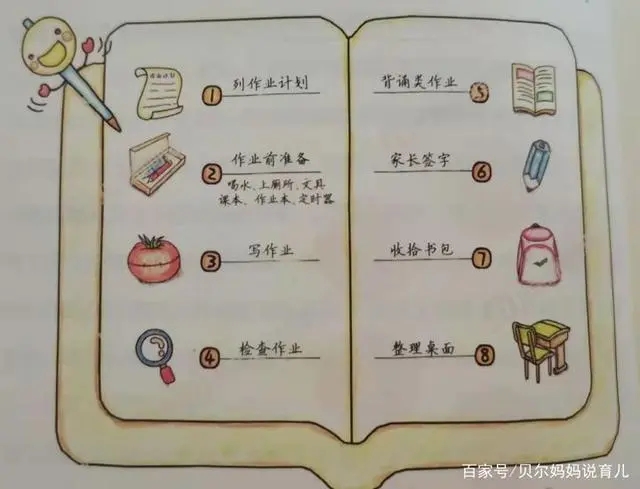 作业计划
1 列作业计划
2 作业前准备
喝水、上厕所、文具
课本、作业本、定时器
3 写作业
4 检查作业
背诵类作业 5
家长签字 6
收拾书包 7
整理桌面 8
百家号/贝尔妈妈说育儿